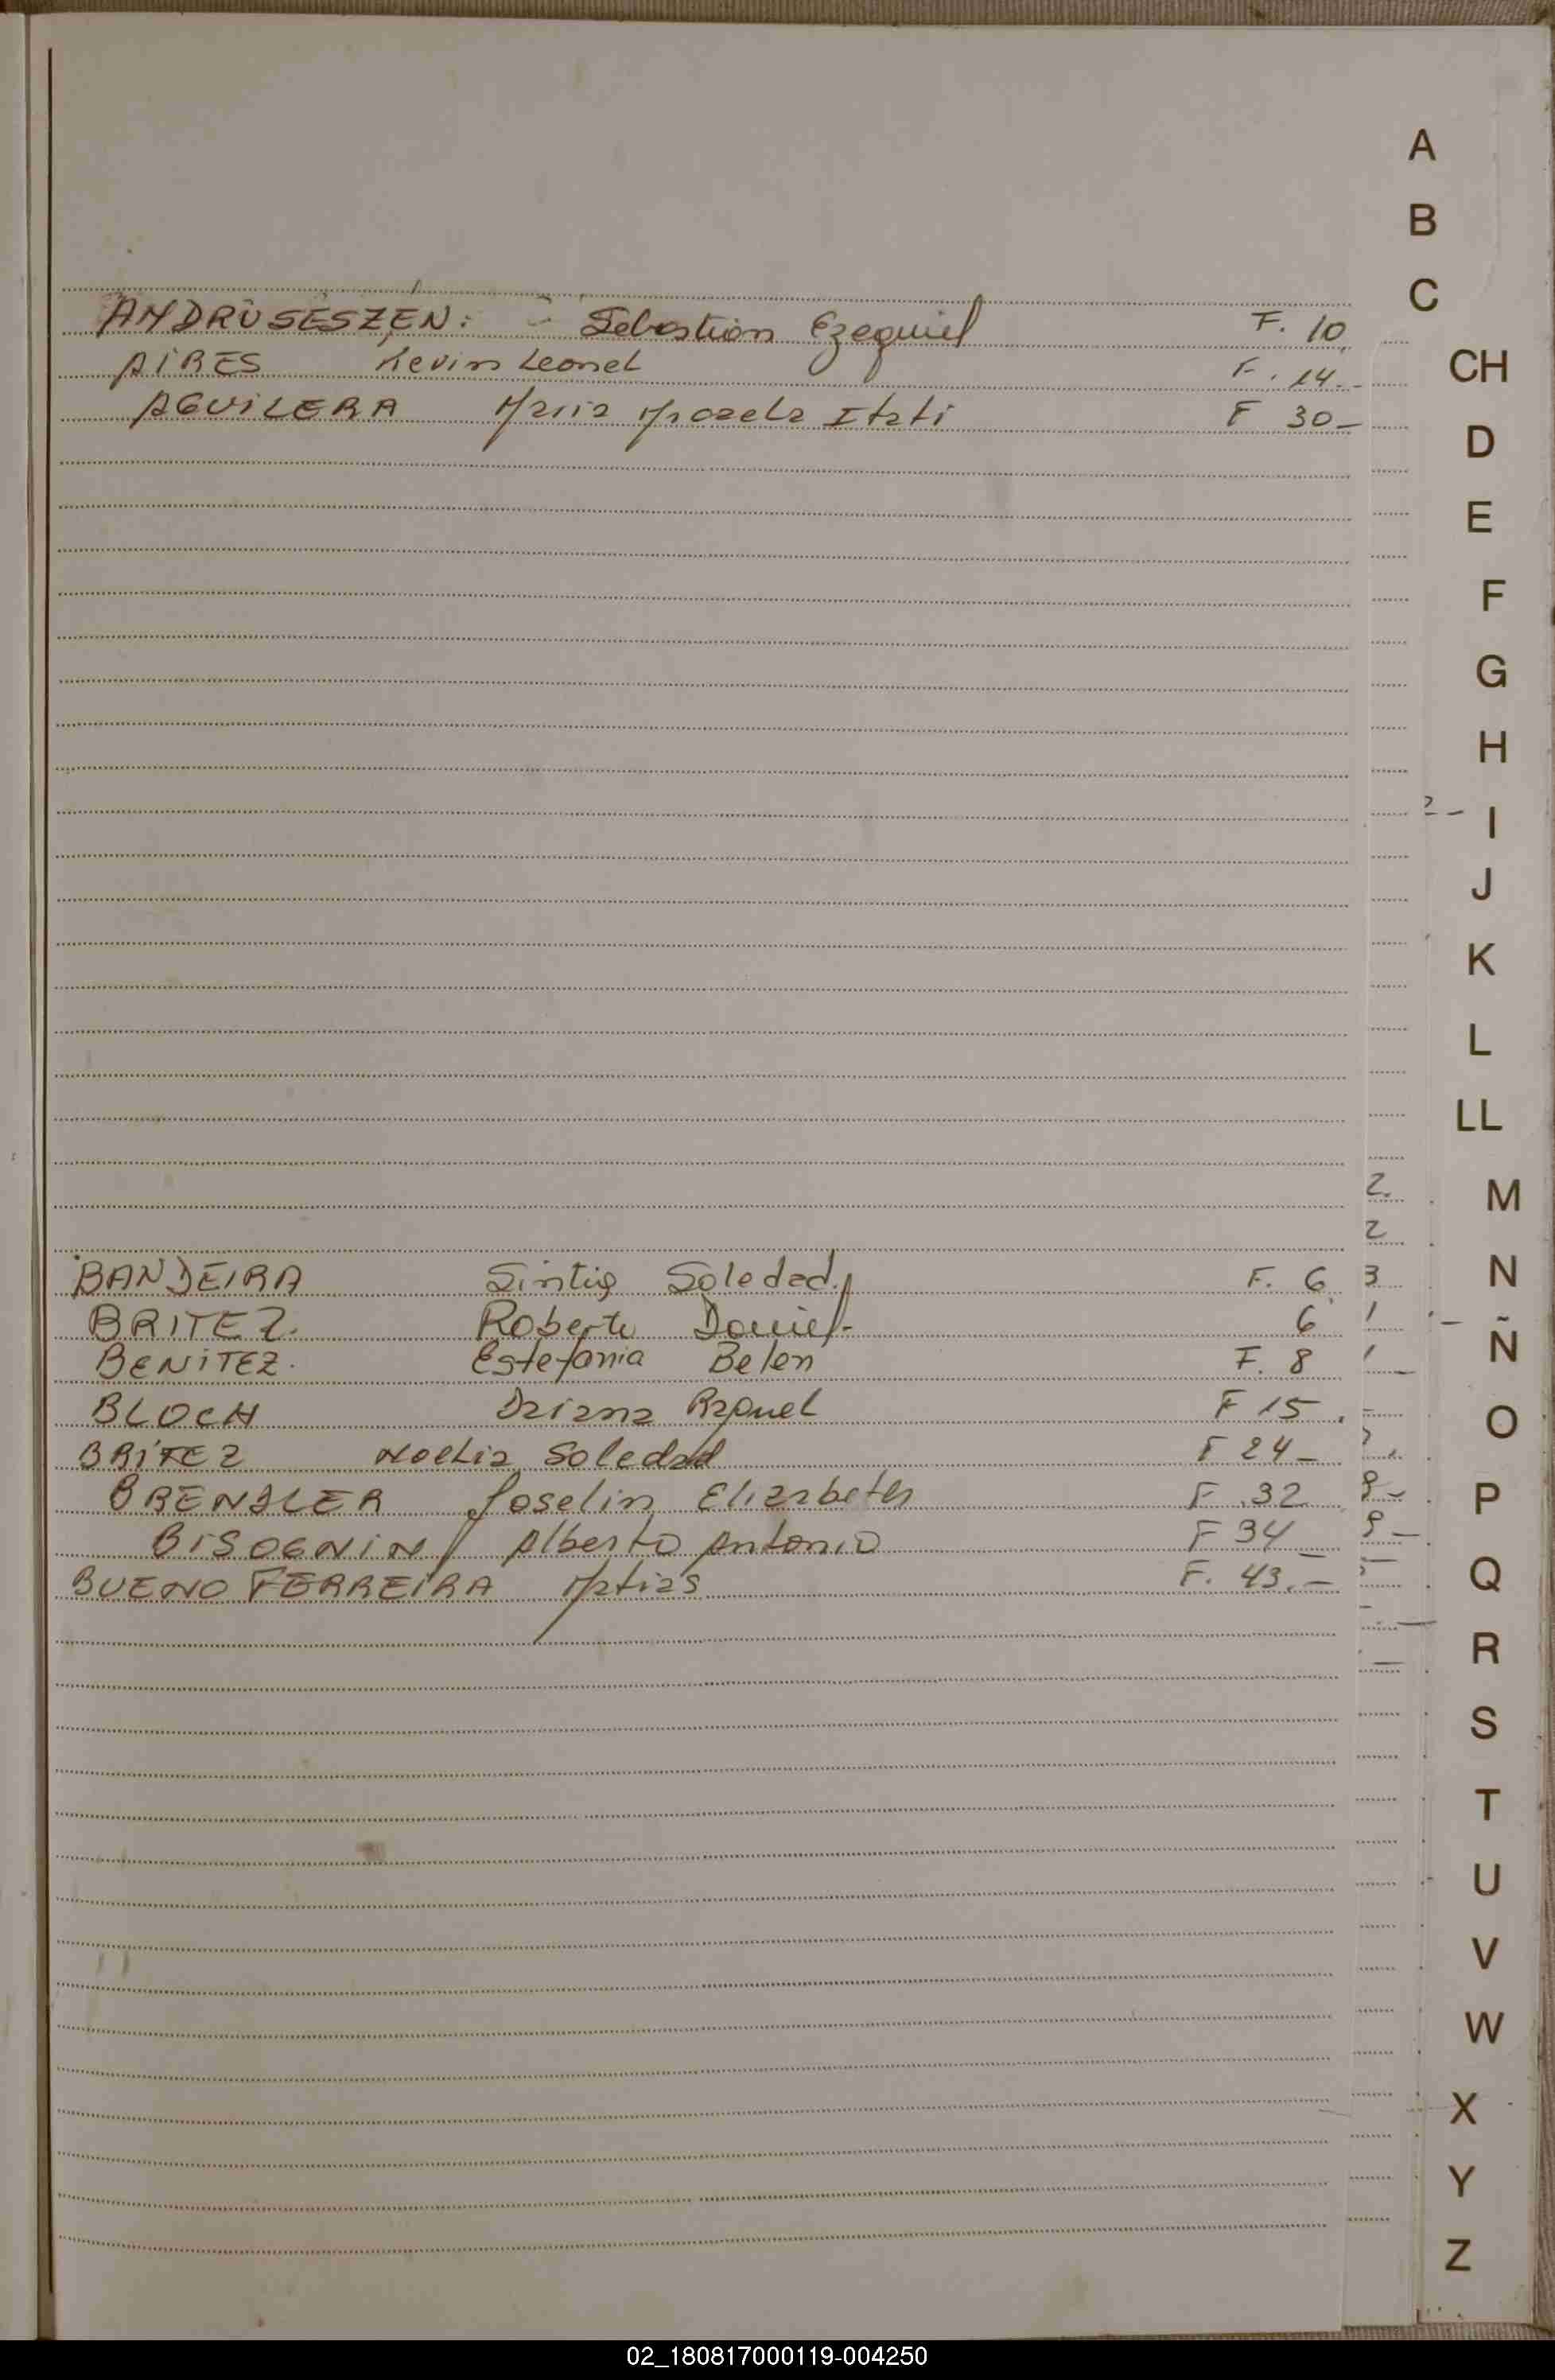 ANDRUSESZEN: - Sebastian Ezequiel F. 10
AIRES Kevin Leonel F. 14.-
AGUILERA Maria Marcela Itati F 30-
BANDEIRA Sintia Soledad. F. 6
BRITEZ. Roberto Daniel- 6
BENITEZ. Estefania Belen F. 8
BLOCH Daiana Raquel F 15.
BRITEZ Noelia Soledad F 24-
BRENDLER Joselin Elizabeth F 32
BISOGNIN Alberto Antonio F 34-
BUENO FERREIRA Matias F. 43.-
2.
2
3
1
A
B
C
CH
D
E
F
G
H
I
J
K
L
LL
M
N
Ñ
O
P
Q
R
S
T
U
V
W
X
Y
Z
02_180817000119-004250